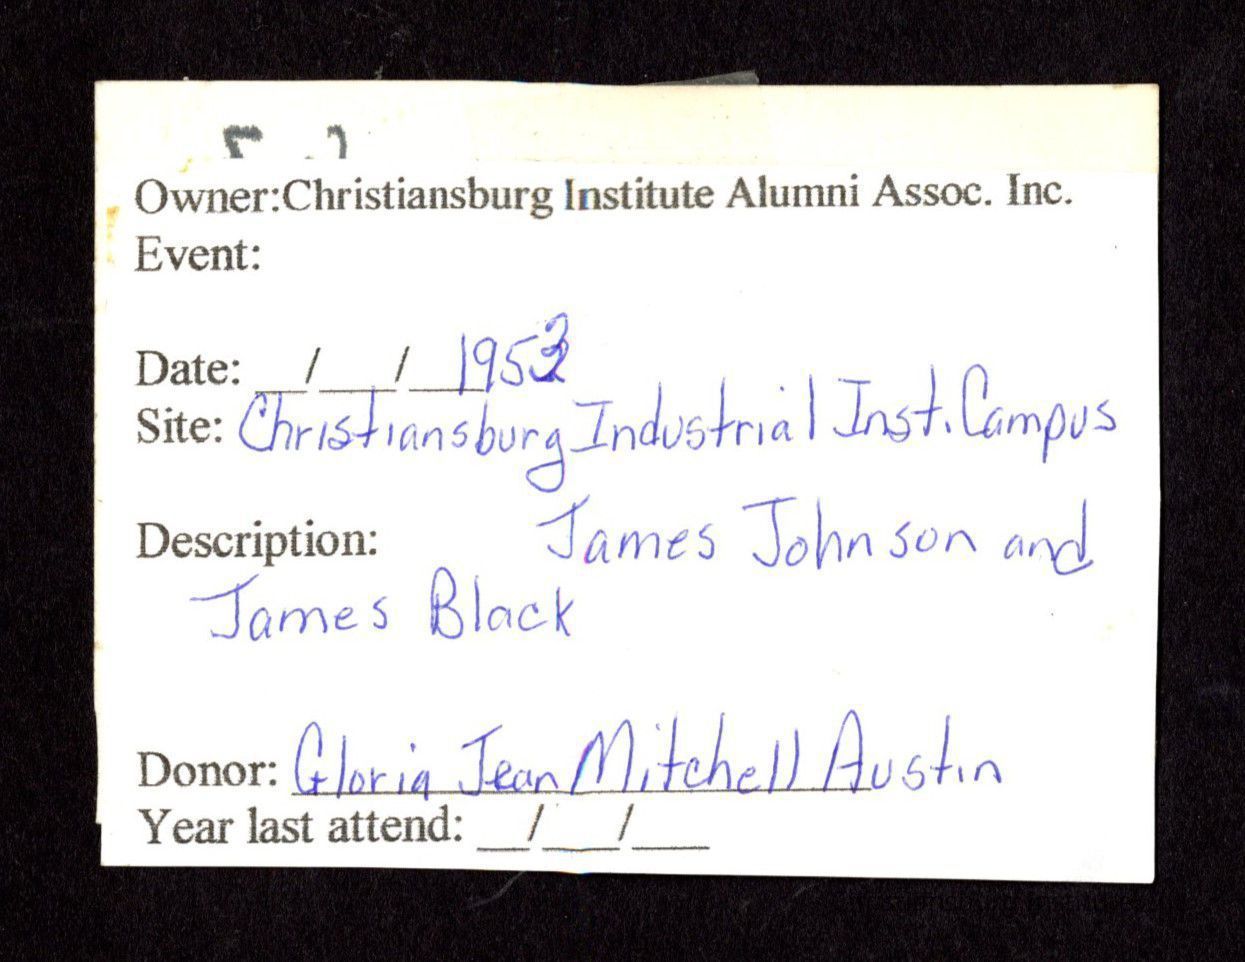 Owner:Christiansburg Institute Alumni Assoc. Inc.
Event:
Date: __/___/___1953
Site: Christiansburg Industrial Inst. Campus
Description: James Johnson and
James Black
Donor: Gloria Jean Mitchell Austin
Year last attend: __/___/___